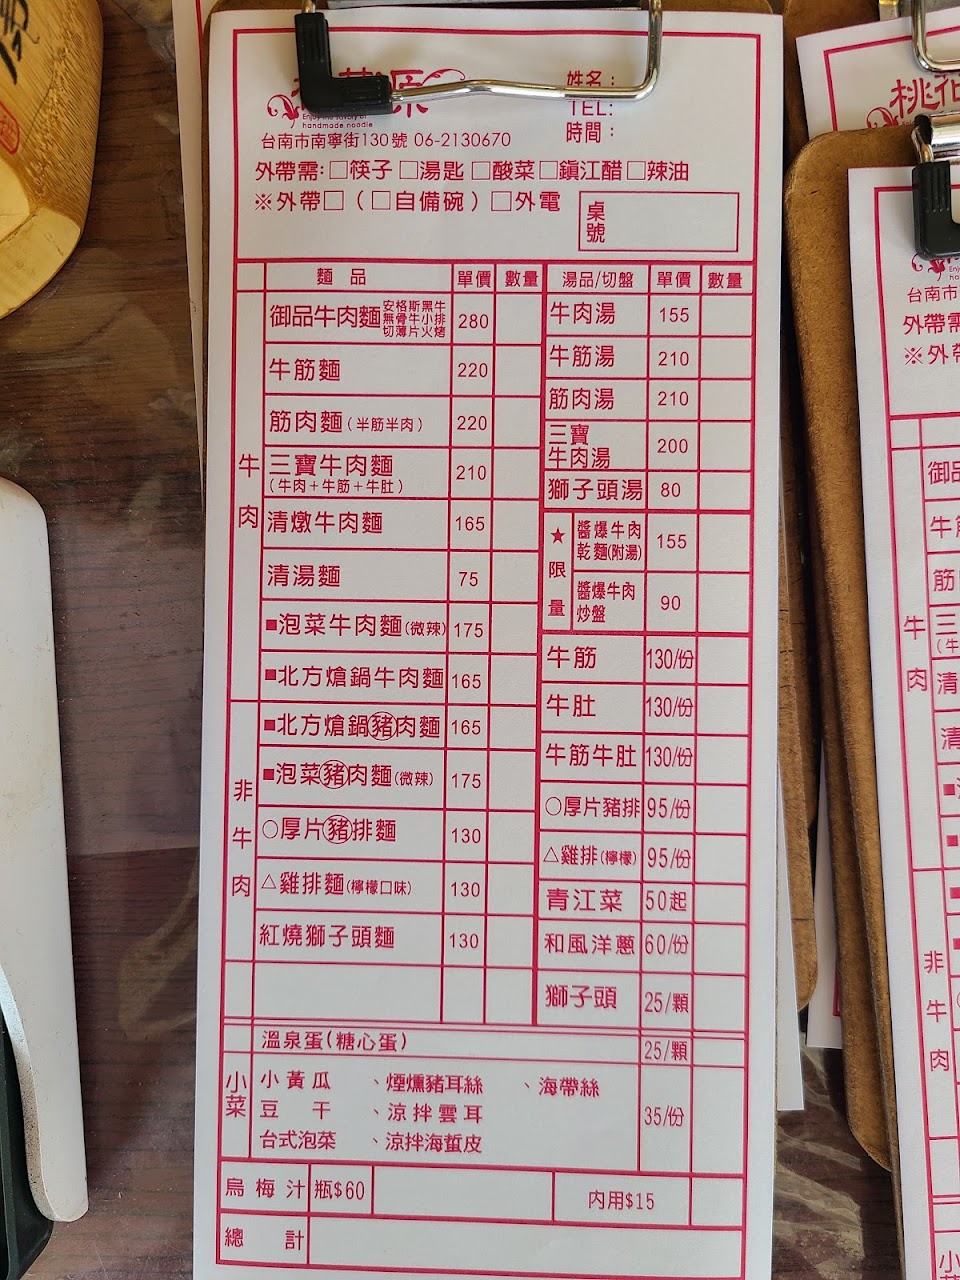 源
Enjoy the savory of
handmade noodle
姓名：
TEL:
時間：
台南市南寧街130號 06-2130670
外帶需:□筷子 □湯匙 □酸菜□鎮江醋□辣油
※外帶□（□自備碗）□外電
桌號
麵 品 單價 數量
牛肉
御品牛肉麵 安格斯黑牛 無骨牛小排 切薄片火烤 280
牛筋麵 220
筋肉麵（半筋半肉） 220
三寶牛肉麵 210
（牛肉＋牛筋＋牛肚）
清燉牛肉麵 165
清湯麵 75
■泡菜牛肉麵(微辣) 175
■北方熗鍋牛肉麵 165
非牛肉
■北方熗鍋豬肉麵 165
■泡菜豬肉麵(微辣) 175
○厚片豬排麵 130
△雞排麵(檸檬口味) 130
紅燒獅子頭麵 130
湯品/切盤 單價 數量
牛肉湯 155
牛筋湯 210
筋肉湯 210
三寶
牛肉湯 200
獅子頭湯 80
★限量
醬爆牛肉
乾麵(附湯) 155
醬爆牛肉
炒盤 90
牛筋 130/份
牛肚 130/份
牛筋牛肚 130/份
○厚片豬排 95/份
△雞排(檸檬) 95/份
青江菜 50起
和風洋蔥 60/份
獅子頭 25/顆
溫泉蛋(糖心蛋) 25/顆
小菜
小黃瓜 、煙燻豬耳絲 、海帶絲
豆 干 、涼拌雲耳
台式泡菜 、涼拌海蜇皮
35/份
烏梅汁 瓶$60 內用$15
總 計
桃花
台南市
外帶需
※外帶
牛肉
御品
牛筋
筋
三
清
清
非牛肉
小菜